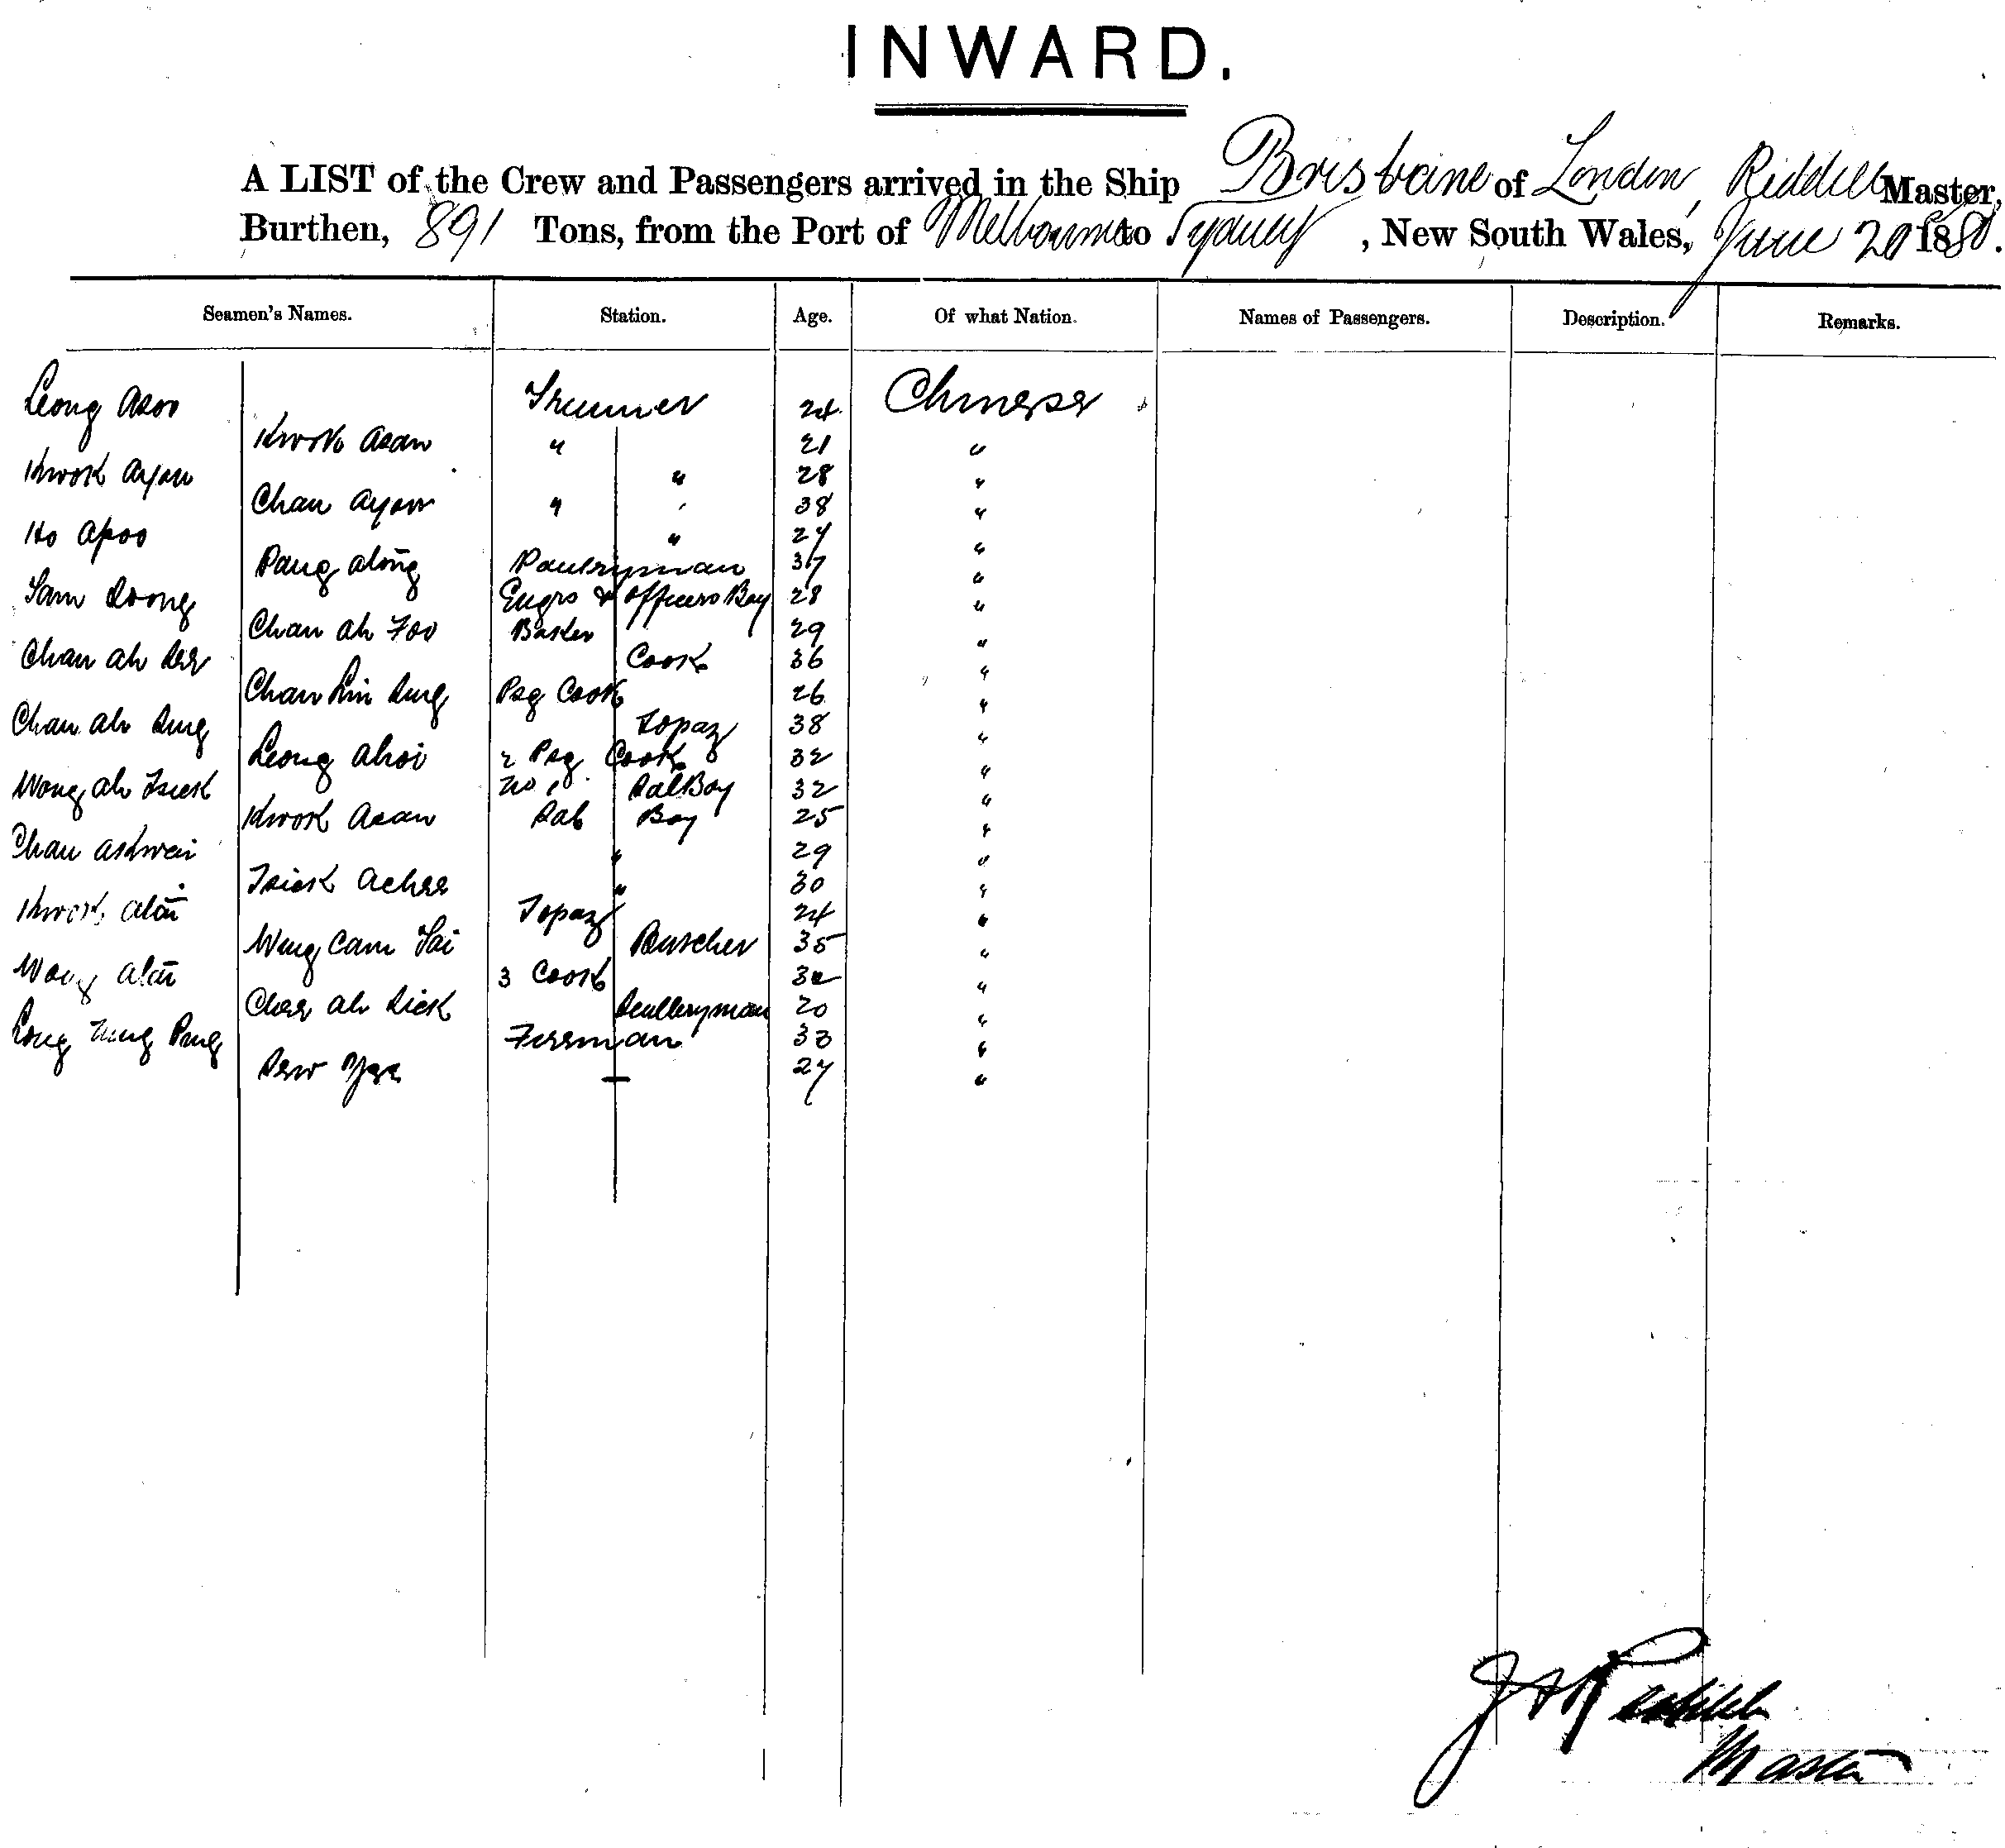 INWARD.
A LIST of the Crew and Passengers arrived in the Ship Brisbane of London, Riddell Master,
Burthen, 891 Tons, from the Port of Melbourne to Sydney, New South Wales, June 20 1880.
Seamen's Names. Station. Age. Of what Nation. Names of Passengers. Description. Remarks.
Leong Asoo Trimmer 24 Chinese
Kwok Asan " 21 "
Kwok Ayan " 28 "
Chan Ayow " 38 "
Ho Apoo " 27 "
Pang Along Pantryman 37 "
Sam Soong Engrs & Officers Boy 28 "
Chan Ah Foo Baker 29 "
Chan Ah See Cook 36 "
Chan Lin Sung Psg Cook 26 "
Chan Ah Sung Topaz 38 "
Leong Ahoi 2 Psg Cook 32 "
Wong Ah Tsick No 1 Sal Boy 32 "
Kwok Asan Sal Boy 25 "
Chan Askwai " 29 "
Tsick Achee " 30 "
Kwok Topaz 24 "
Wong Cam Tai Butcher 35 "
Wong 3 Cook "
Chee Ah Sick Sculleryman 20 "
Fireman 33 "
27 "
Riddell
Master